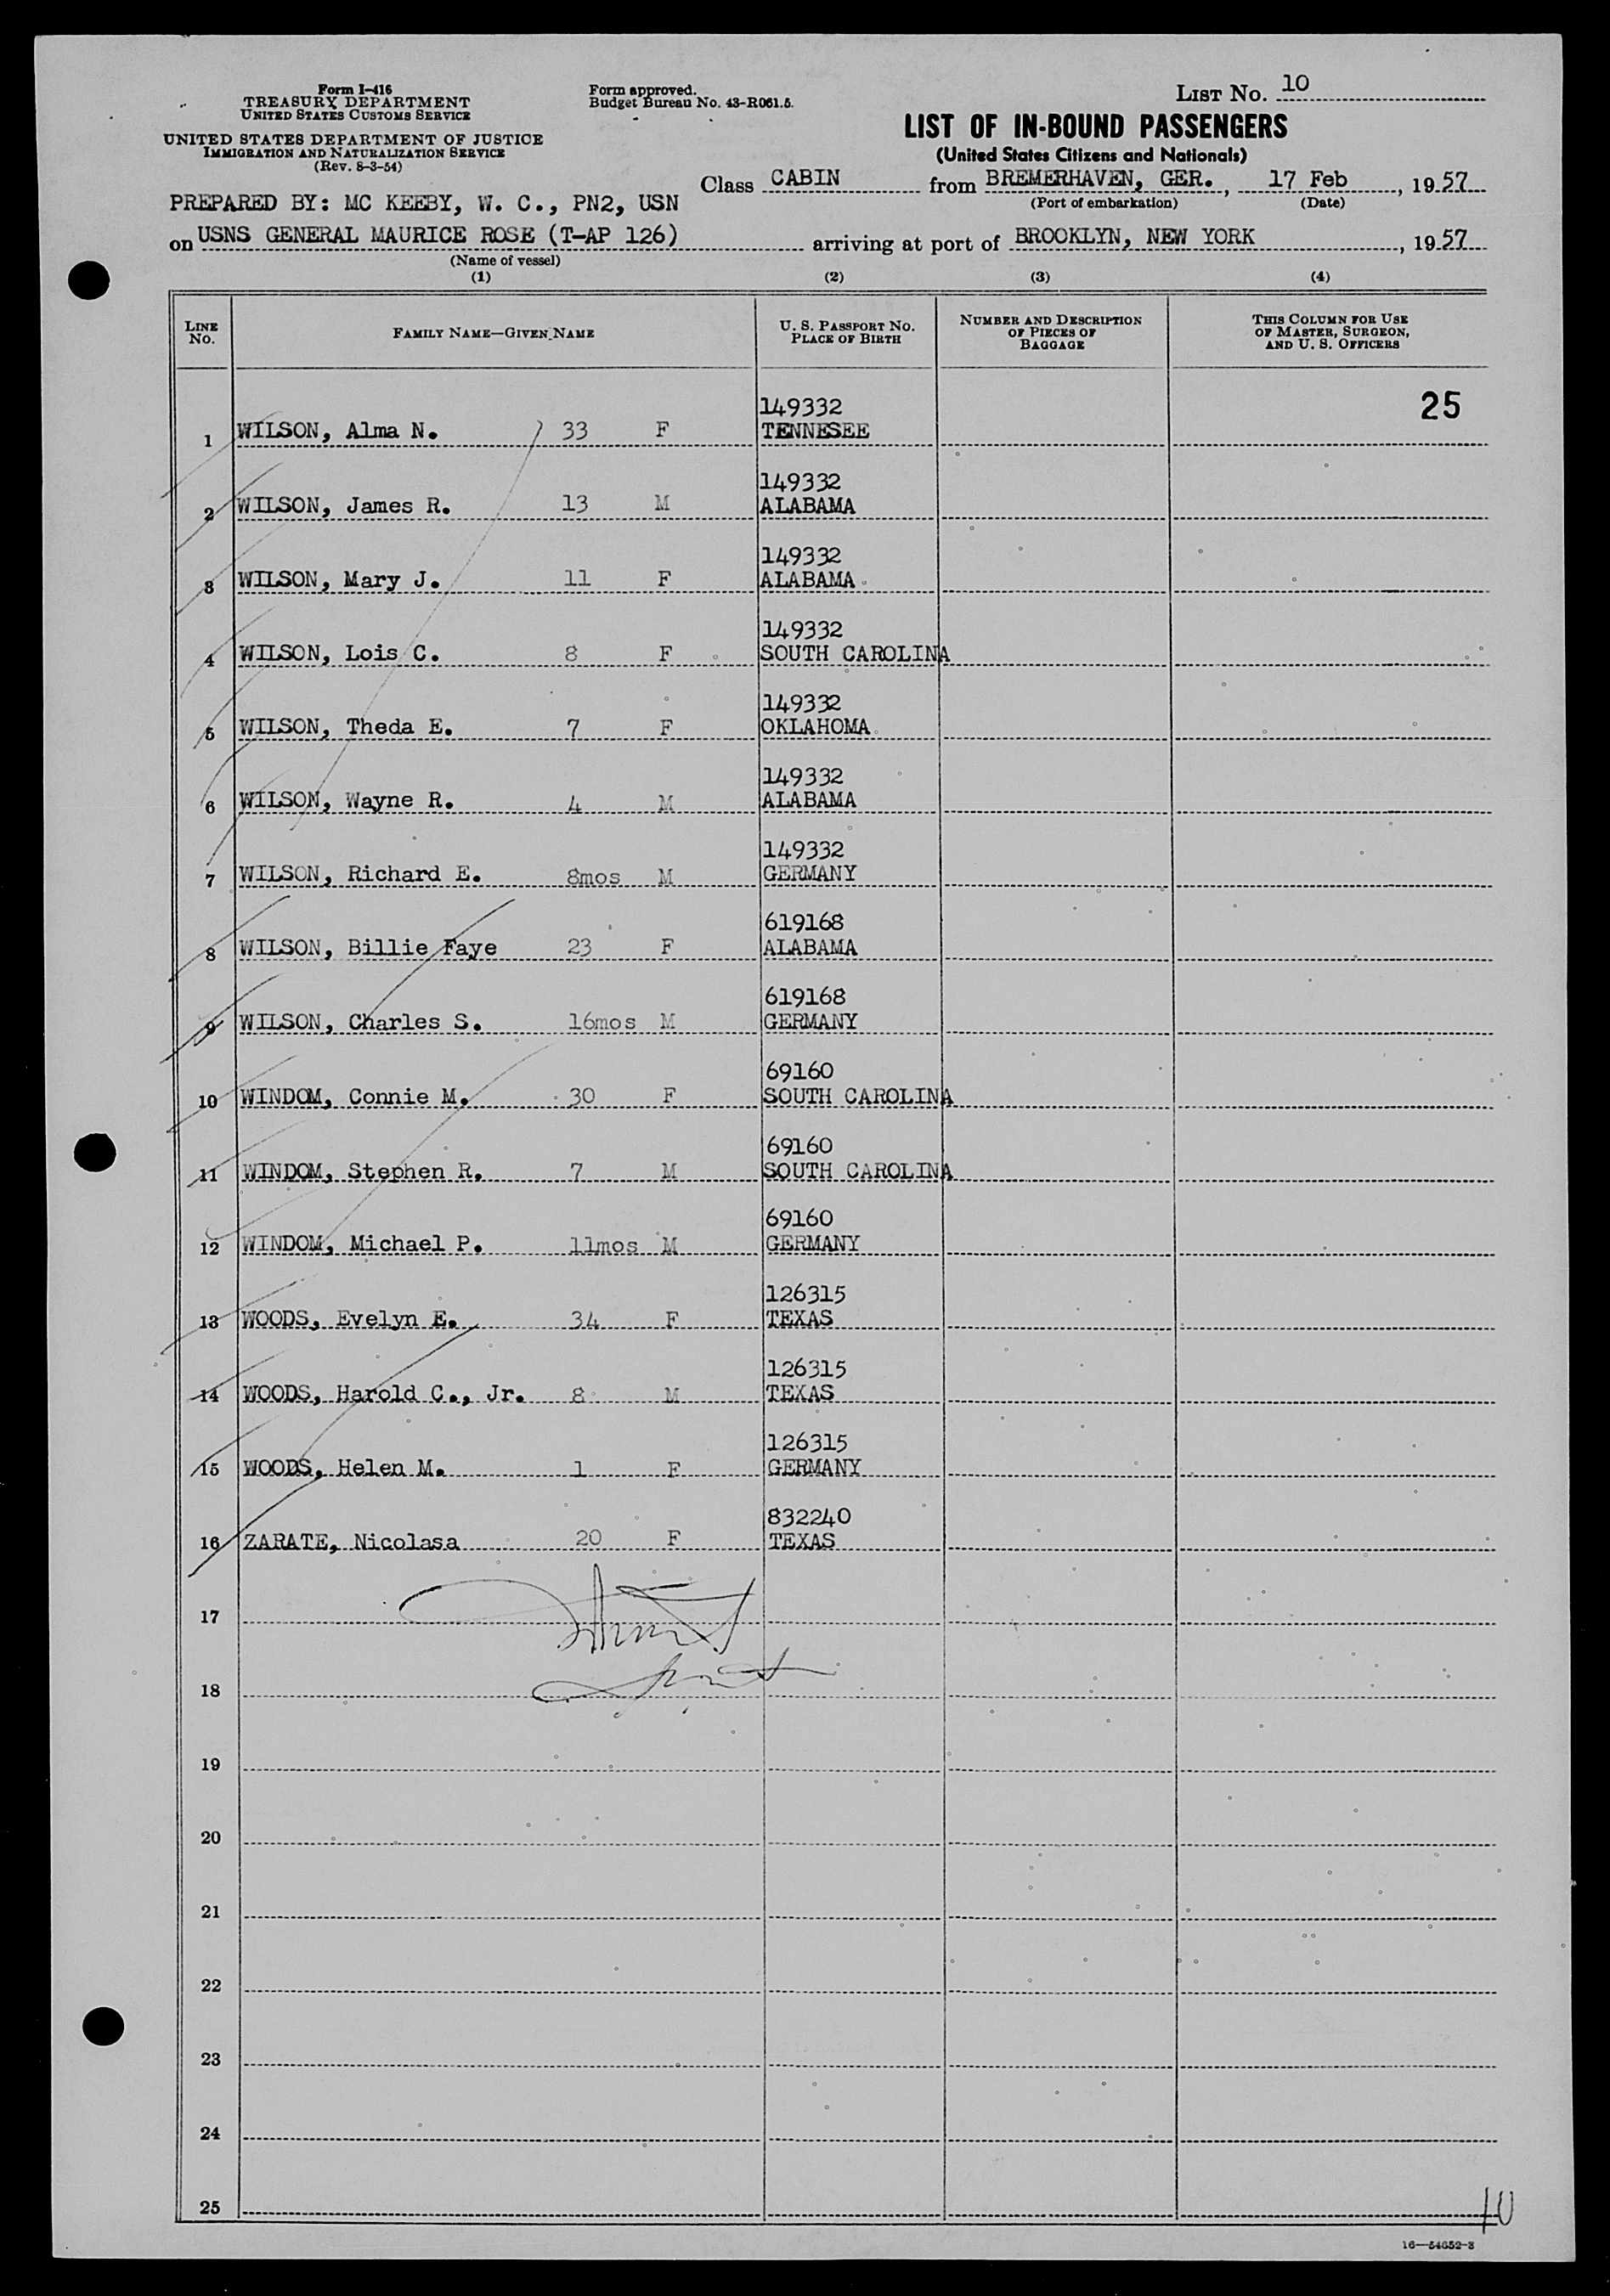 Form I-416
TREASURY DEPARTMENT
UNITED STATES CUSTOMS SERVICE
UNITED STATES DEPARTMENT OF JUSTICE
IMMIGRATION AND NATURALIZATION SERVICE
(Rev. 8-3-54)
Form approved.
Budget Bureau No. 43-R061.5.
LIST No. 10
LIST OF IN-BOUND PASSENGERS
(United States Citizens and Nationals)
Class CABIN from BREMERHAVEN, GER., 17 Feb, 1957
(Port of embarkation) (Date)
PREPARED BY: MC KEEBY, W. C., PN2, USN
on USNS GENERAL MAURICE ROSE (T-AP 126) arriving at port of BROOKLYN, NEW YORK, 1957
(Name of vessel)
(1) (2) (3) (4)
LINE NO. FAMILY NAME—GIVEN NAME U. S. PASSPORT NO. PLACE OF BIRTH NUMBER AND DESCRIPTION OF PIECES OF BAGGAGE THIS COLUMN FOR USE OF MASTER, SURGEON, AND U. S. OFFICERS
25
149332
1 WILSON, Alma N. 33 F TENNESEE
149332
2 WILSON, James R. 13 M ALABAMA
149332
3 WILSON, Mary J. 11 F ALABAMA
149332
4 WILSON, Lois C. 8 F SOUTH CAROLINA
149332
5 WILSON, Theda E. 7 F OKLAHOMA
149332
6 WILSON, Wayne R. 4 M ALABAMA
149332
7 WILSON, Richard E. 8mos M GERMANY
619168
8 WILSON, Billie Faye 23 F ALABAMA
619168
9 WILSON, Charles S. 16mos M GERMANY
69160
10 WINDOM, Connie M. 30 F SOUTH CAROLINA
69160
11 WINDOM, Stephen R. 7 M SOUTH CAROLINA
69160
12 WINDOM, Michael P. 11mos M GERMANY
126315
13 WOODS, Evelyn E. 34 F TEXAS
126315
14 WOODS, Harold C., Jr. 8 M TEXAS
126315
15 WOODS, Helen M. 1 F GERMANY
832240
16 ZARATE, Nicolasa 20 F TEXAS
17
18
19
20
21
22
23
24
25
10
16—54652-3